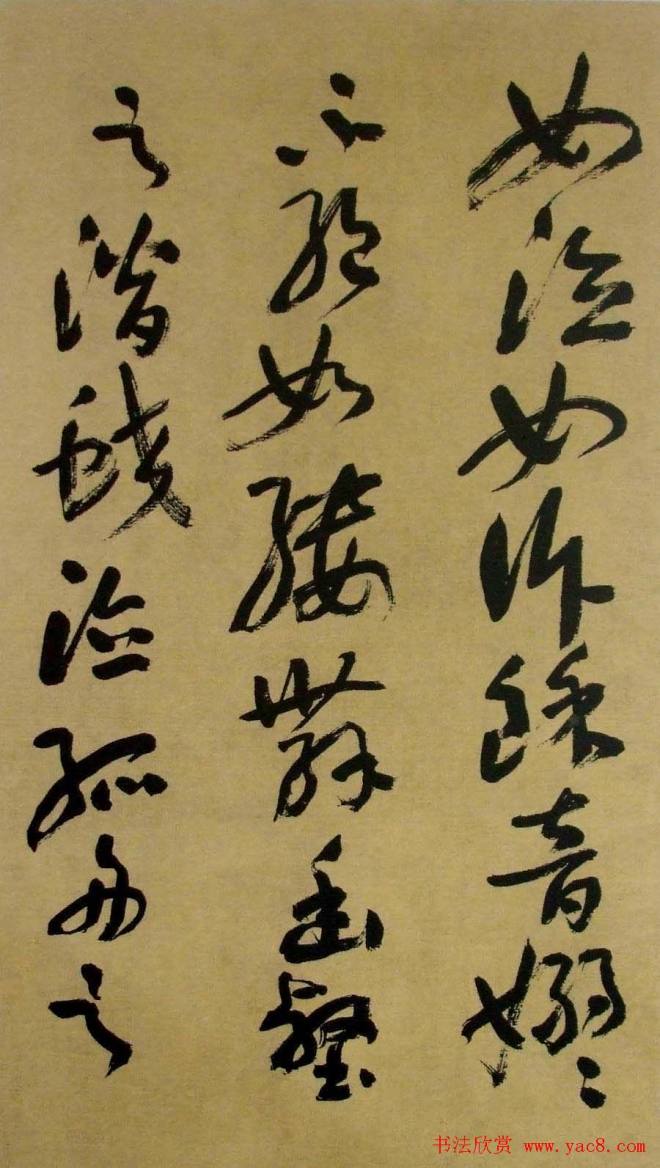 如泣如訴餘音嫋〻
不絕如縷舞幽壑
之潛蛟泣孤舟之
书法欣赏 www.yac8.com